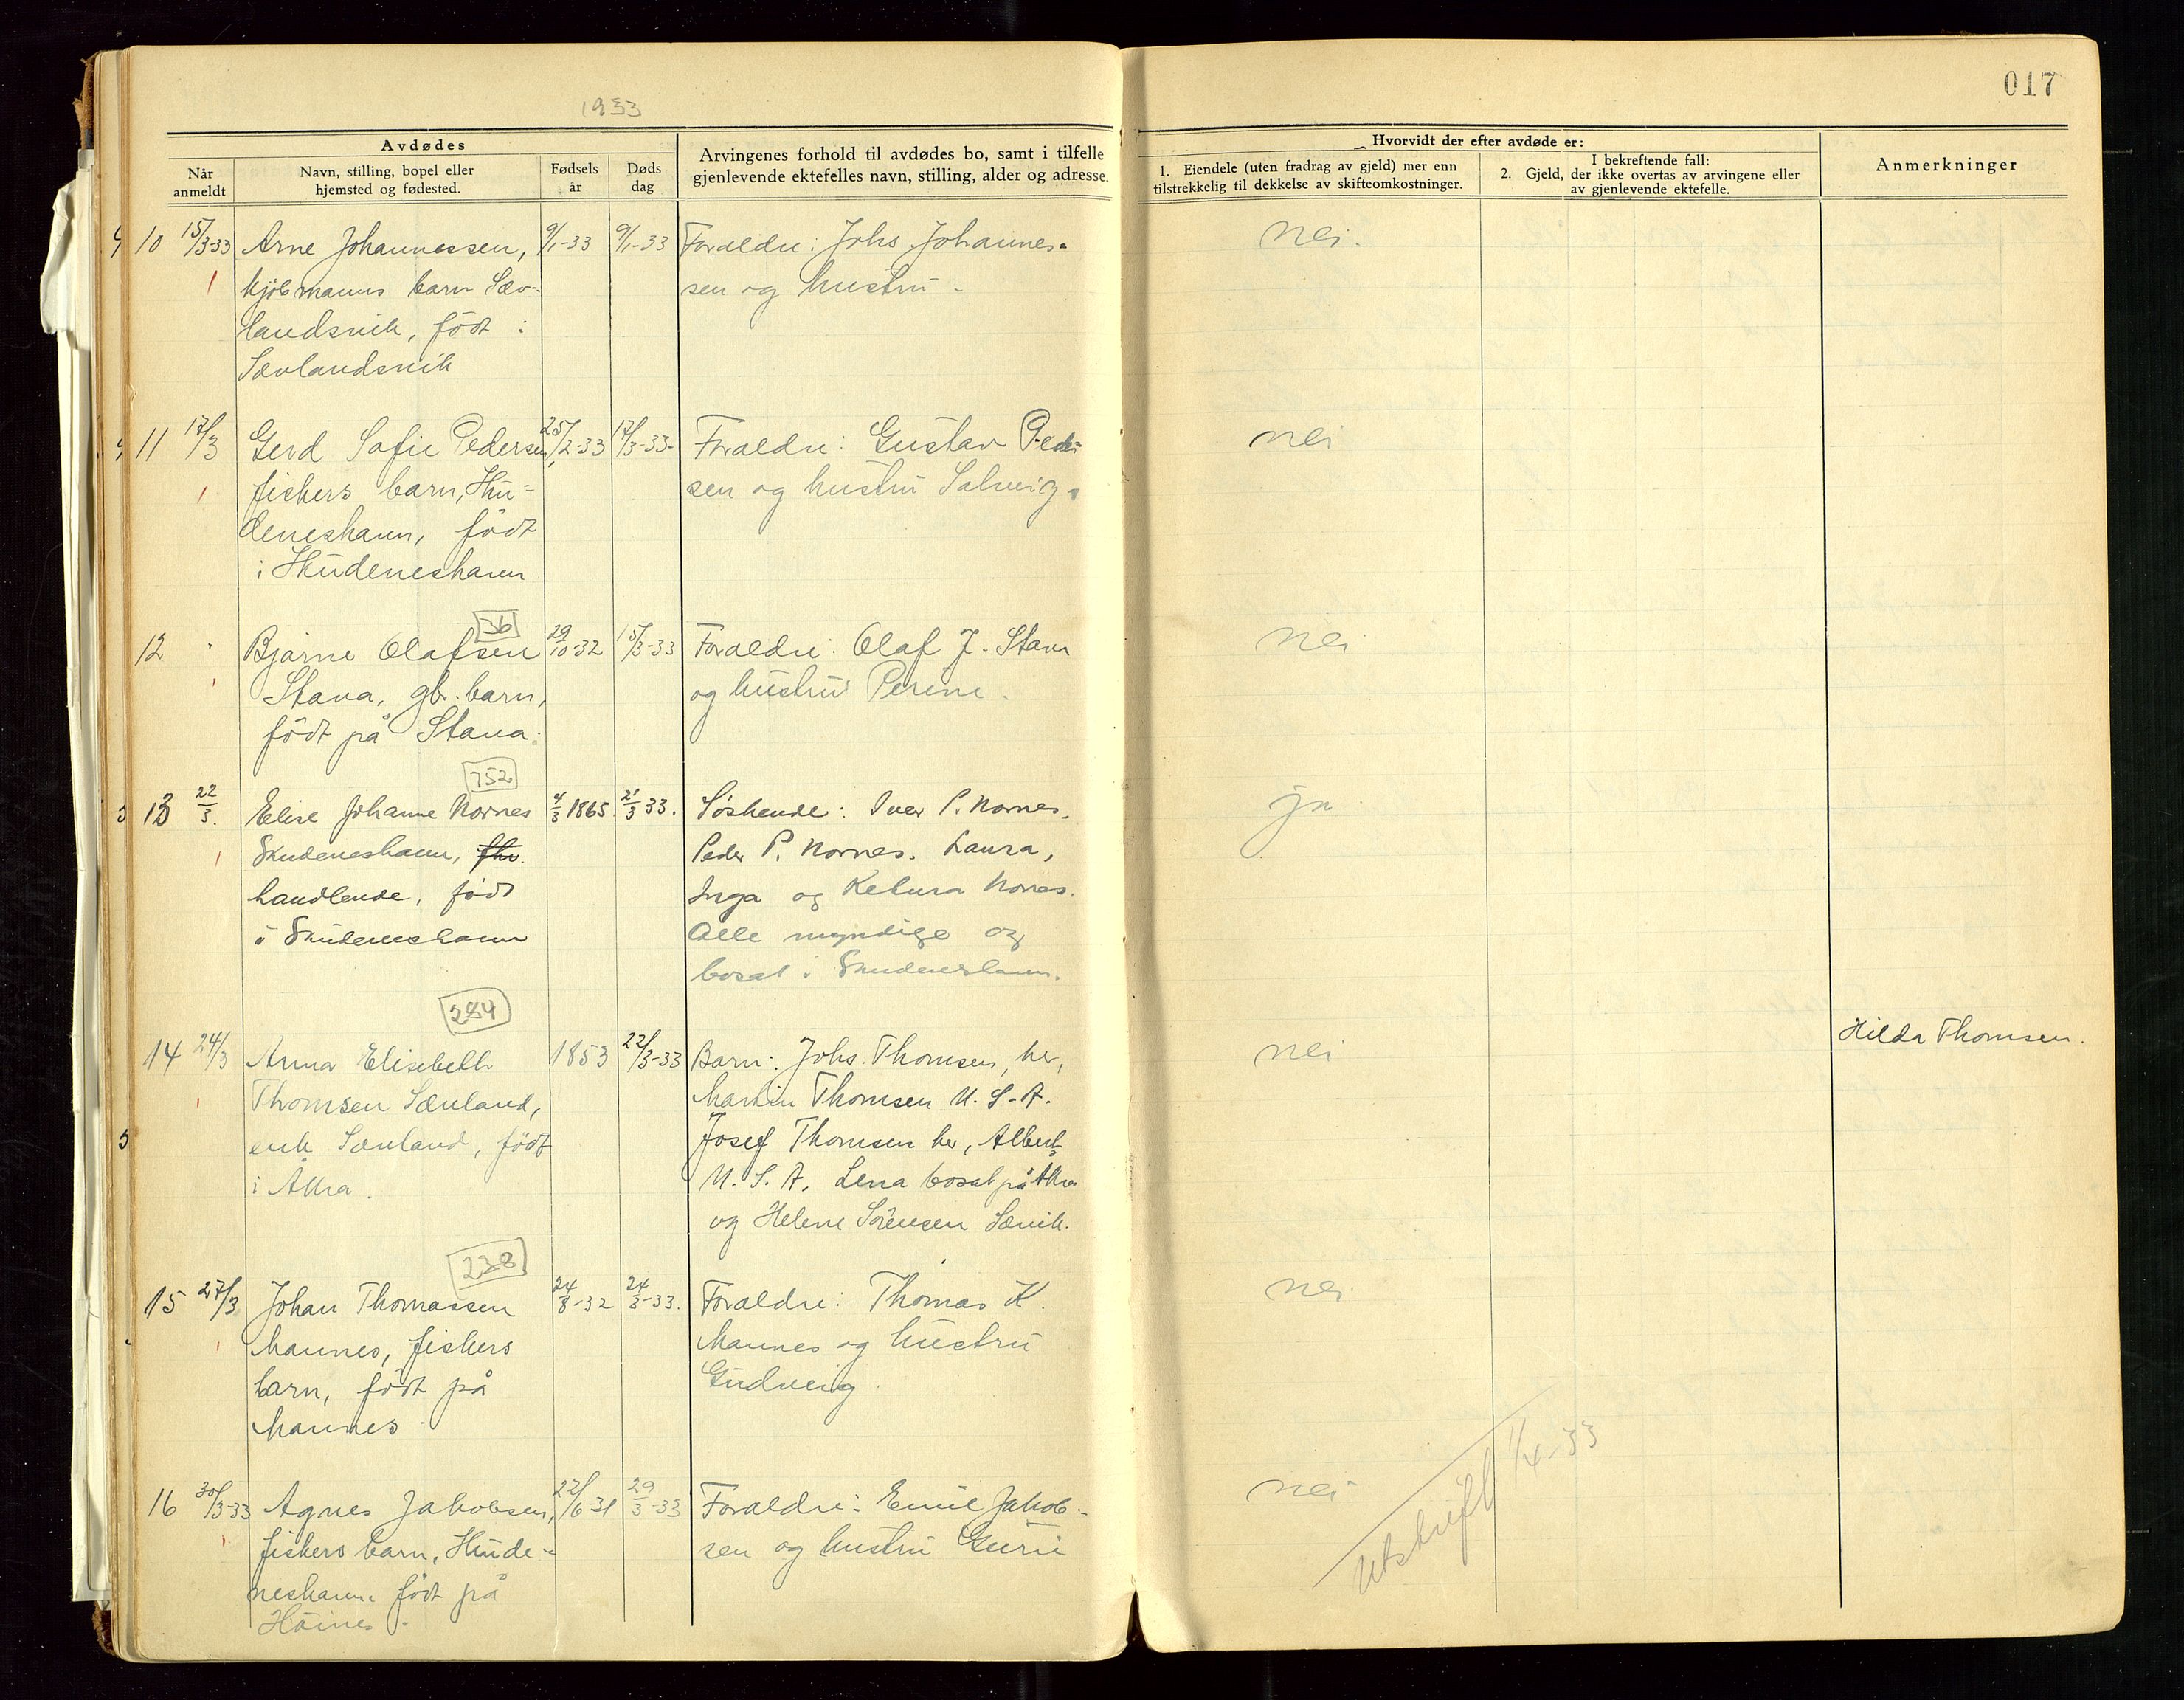 017
1933
Avdødes
Når anmeldt
Navn, stilling, bopel eller hjemsted og fødested.
Fødsels år
Døds dag
Arvingenes forhold til avdødes bo, samt i tilfelle gjenlevende ektefelles navn, stilling, alder og adresse.
Hvorvidt der efter avdøde er:
1. Eiendele (uten fradrag av gjeld) mer enn tilstrekkelig til dekkelse av skifteomkostninger.
I bekreftende fall:
2. Gjeld, der ikke overtas av arvingene eller av gjenlevende ektefelle.
Anmerkninger
10 15/3-33 Arne Johannessen, 9/1-33 9/1-33 Foraldre: Johs Johannes-
kjøbmanns barn Sæv-
sen og hustru -
landsvik, født i
Sævlandsvik
nei.
11 17/3 Gerd Sofie Pedersen 25/2-33 12/3-33- Foraldre: Gustav Peder
fishers barn, Sku-
sen og hustru Solveig.
deneshavn, født
i Skudeneshavn
nei
36
12 " Bjarne Olafsen 29/10-32 15/3-33 Foraldre: Olaf J. Stava
Stava, gb. barn,
og hustru Perine.
født på Stava.
nei
752
13 22/3. Elise Johanne Nornes 4/3 1865. 21/3 33. Søskende: Iver P. Nornes.
Skudeneshavn, fhv.
Peder P. Nornes. Laura,
handlende, født
Inga og Ketura Nornes.
i Skudeneshavn
Alle myndige og
bosat i Skudeneshavn.
ja
284
14 24/3 Anna Elisebeth 1853 22/3-33 Barn: Johs. Thomsen, her,
Thomsen Sævland,
Martin Thomsen U.S.A.
enk Sævland, født
Josef Thomsen her, Albert
i Åkra.
U.S.A, Lena bosat på Åkra
og Helene Sørensen Sævik.
nei
Hilda Thomsen.
238
15 27/3 Johan Thomassen 24/8-32 24/3-33. Foraldre: Thomas K.
Mannes, fishers
Mannes og hustru
barn, født på
Gudveig.
Mannes.
nei
16 30/3-33 Agnes Jakobsen, 22/6-31 29/3-33 Foraldre: Emil Jakob-
fishers barn, Skude-
sen og hustru Guri
neshavn født på
Høines.
nei
Utskrift 1/4-33